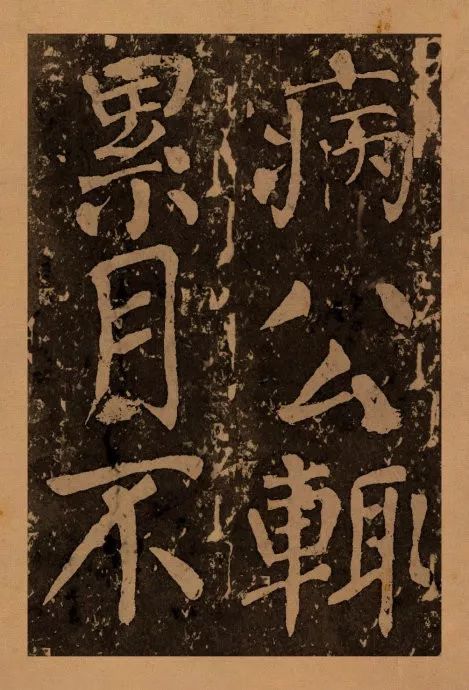 病公輒
累月不